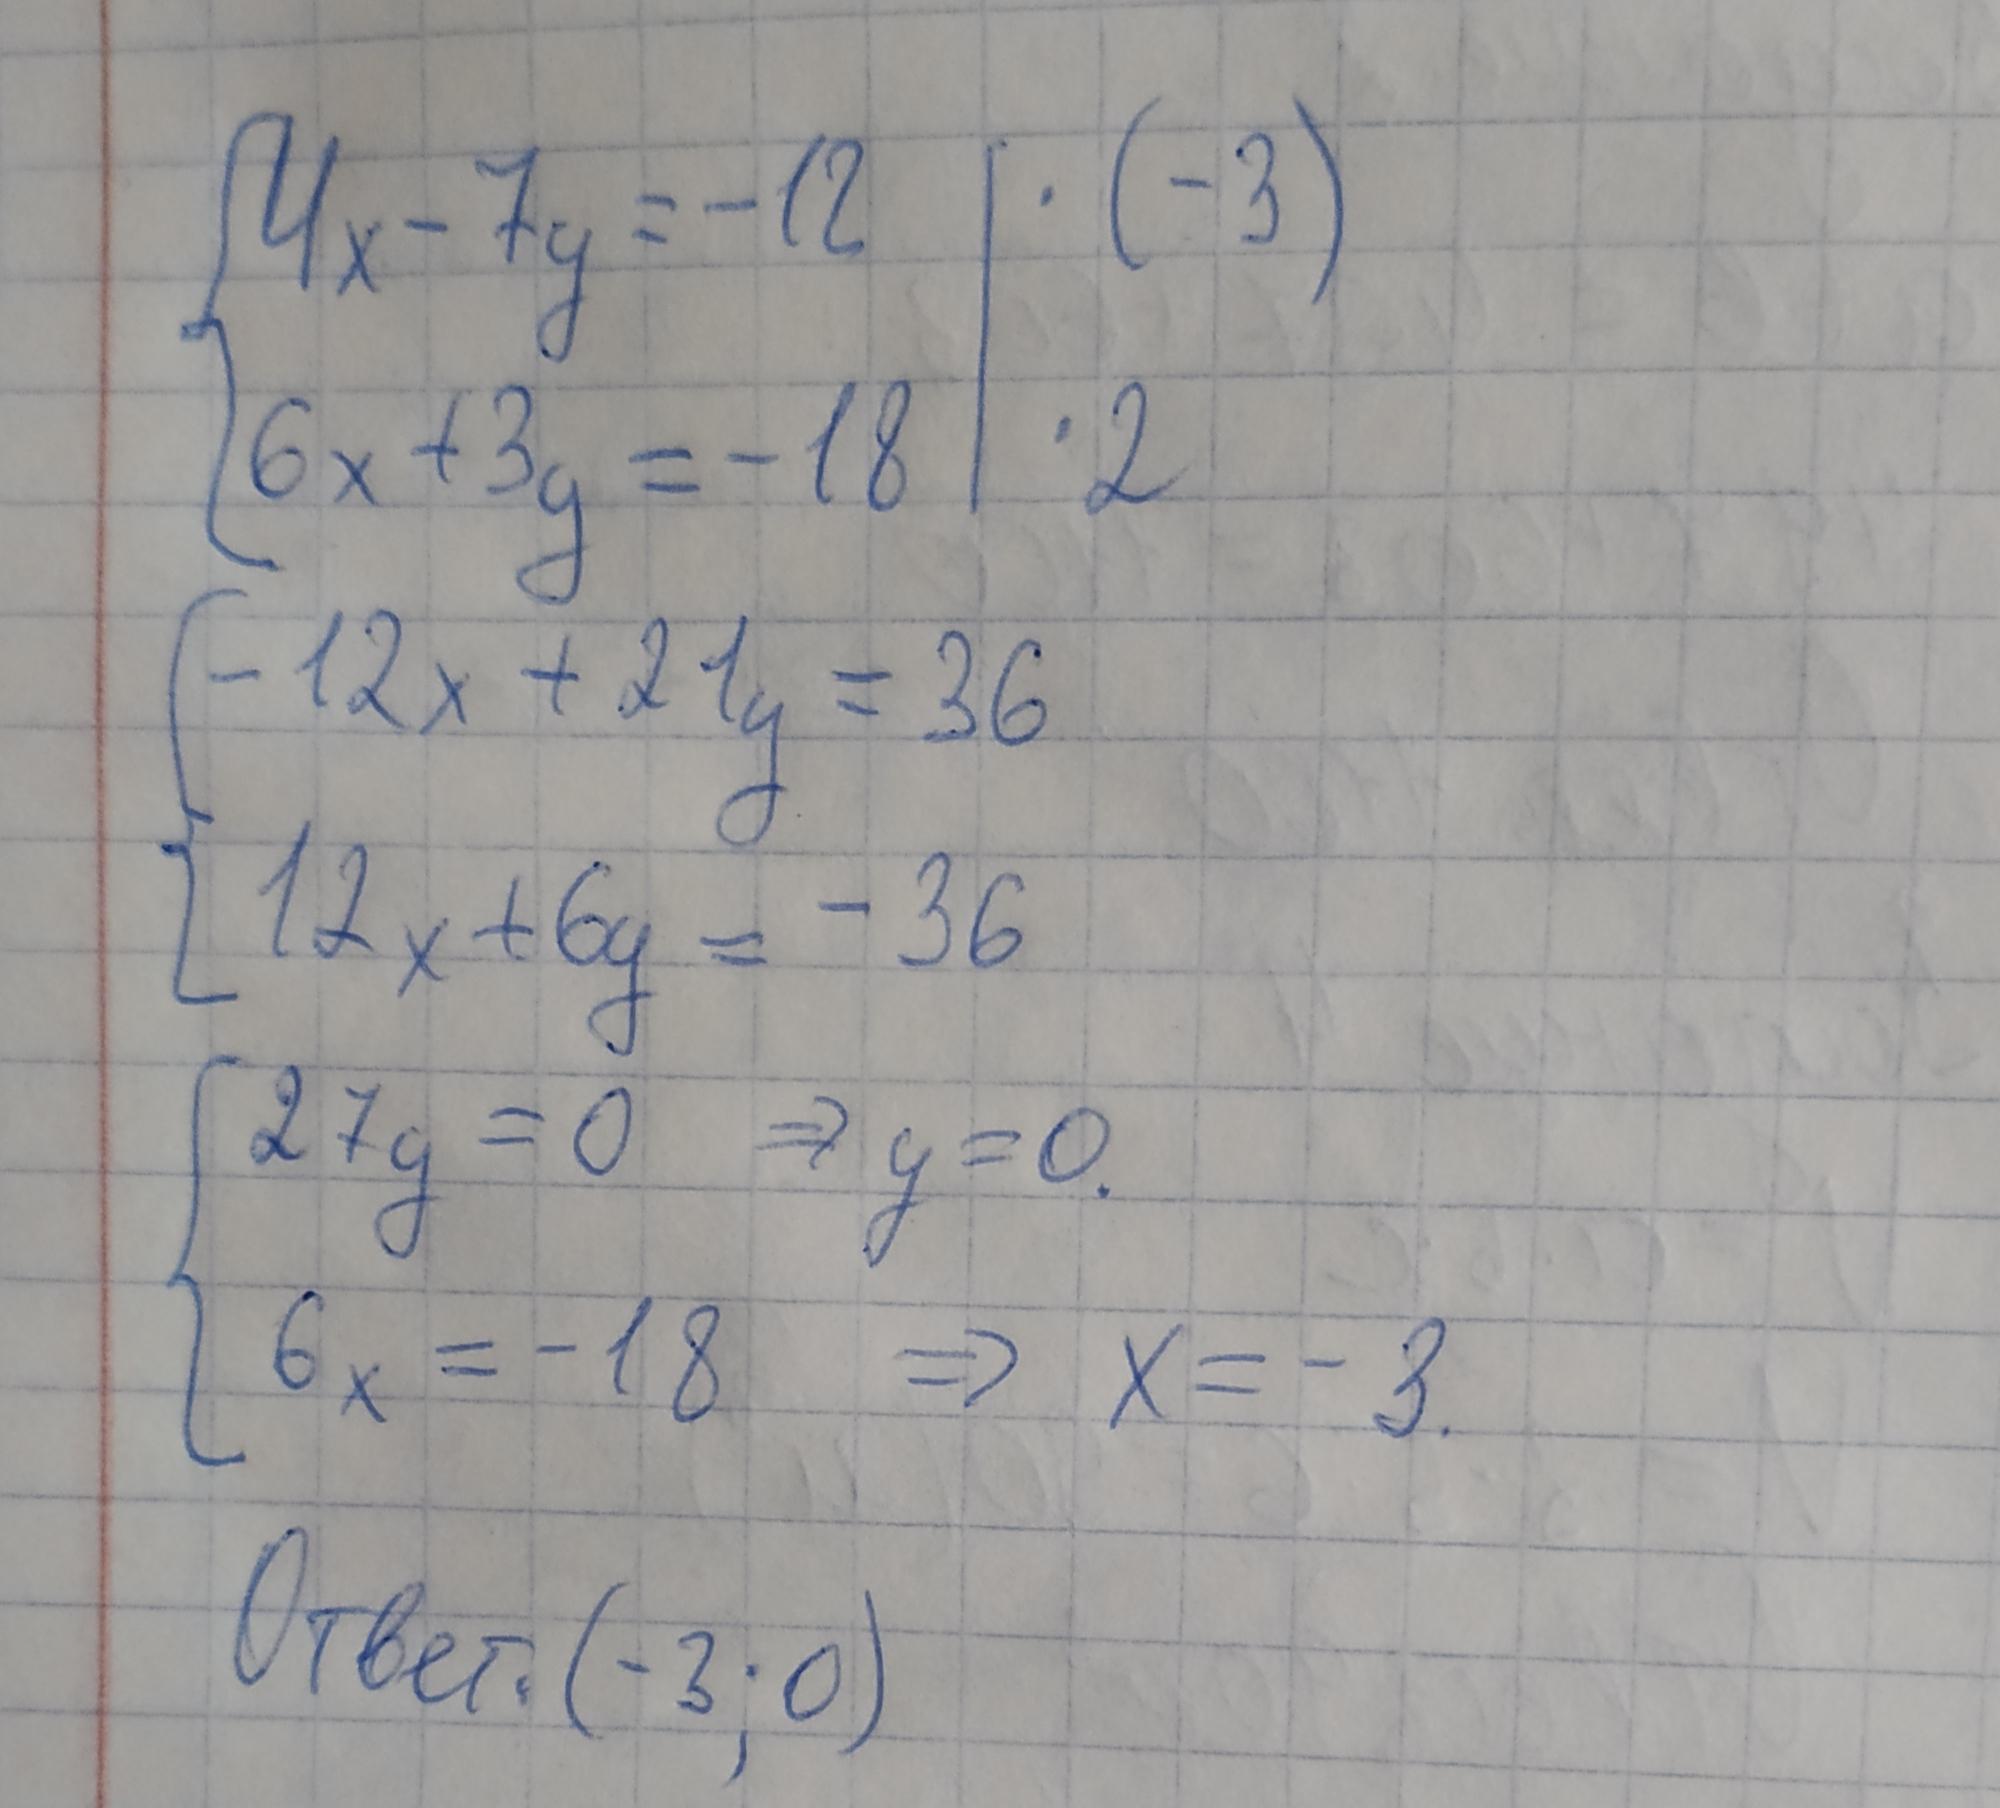 4x - 7y = -12 | · (-3)
6x + 3y = -18 | · 2
-12x + 21y = 36
12x + 6y = -36
27y = 0 ⇒ y = 0.
6x = -18 ⇒ x = -3.
Ответ: (-3; 0)